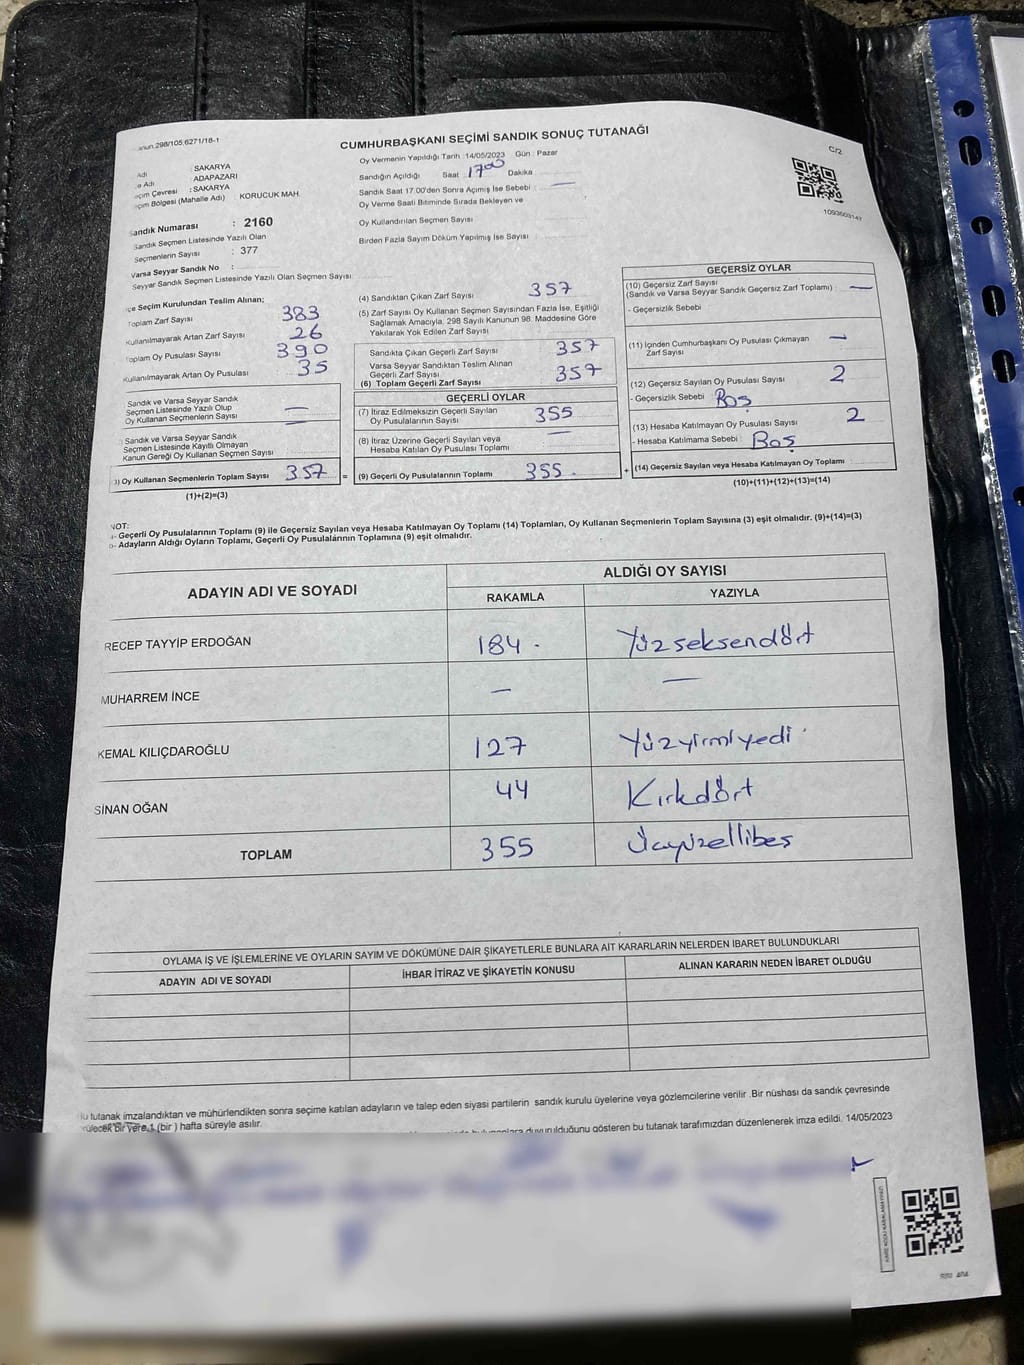 298/105,6271/18-1
CUMHURBAŞKANI SEÇİMİ SANDIK SONUÇ TUTANAĞI
C/2
Adı : SAKARYA
Adı : ADAPAZARI
Çevresi : SAKARYA
Bölgesi (Mahalle Adı) KORUCUK MAH.
Sandık Numarası : 2160
Sandık Seçmen Listesinde Yazılı Olan
Seçmenlerin Sayısı : 377
Varsa Seyyar Sandık No :
Seyyar Sandık Seçmen Listesinde Yazılı Olan Seçmen Sayısı
Oy Vermenin Yapıldığı Tarih :14/05/2023 Gün : Pazar
Sandığın Açıldığı Saat 1700 Dakika
Sandık Saat 17.00'den Sonra Açımış İse Sebebi : —
Oy Verme Saati Bitiminde Sırada Bekleyen ve
Oy Kullandırılan Seçmen Sayısı
Birden Fazla Sayım Döküm Yapılmış İse Sayısı
Seçim Kurulundan Teslim Alınan;
Toplam Zarf Sayısı 383
Kullanılmayarak Artan Zarf Sayısı 26
Toplam Oy Pusulası Sayısı 390
Kullanılmayarak Artan Oy Pusulası 35
Sandık ve Varsa Seyyar Sandık
Seçmen Listesinde Yazılı Olup
Oy Kullanan Seçmenlerin Sayısı —
Sandık ve Varsa Seyyar Sandık
Seçmen Listesinde Kayıtlı Olmayan
Kanun Gereği Oy Kullanan Seçmen Sayısı
Oy Kullanan Seçmenlerin Toplam Sayısı 357 =
(1)+(2)=(3)
(4) Sandıktan Çıkan Zarf Sayısı 357
(5) Zarf Sayısı Oy Kullanan Seçmen Sayısından Fazla İse, Eşitliği
Sağlamak Amacıyla, 298 Sayılı Kanunun 98. Maddesine Göre
Yakılarak Yok Edilen Zarf Sayısı
Sandıkta Çıkan Geçerli Zarf Sayısı 357
Varsa Seyyar Sandıktan Teslim Alınan
Geçerli Zarf Sayısı
(6) Toplam Geçerli Zarf Sayısı 357
GEÇERLİ OYLAR
(7) İtiraz Edilmeksizin Geçerli Sayılan
Oy Pusulasının Sayısı 355
(8) İtiraz Üzerine Geçerli Sayılan veya
Hesaba Katılan Oy Pusulası Toplamı —
(9) Geçerli Oy Pusulalarının Toplamı 355 +
GEÇERSİZ OYLAR
(10) Geçersiz Zarf Sayısı
(Sandık ve Varsa Seyyar Sandık Geçersiz Zarf Toplamı) : —
- Geçersizlik Sebebi :
(11) İçinden Cumhurbaşkanı Oy Pusulası Çıkmayan
Zarf Sayısı —
(12) Geçersiz Sayılan Oy Pusulası Sayısı 2
- Geçersizlik Sebebi : Boş
(13) Hesaba Katılmayan Oy Pusulası Sayısı 2
- Hesaba Katılmama Sebebi : Boş
(14) Geçersiz Sayılan veya Hesaba Katılmayan Oy Toplamı
(10)+(11)+(12)+(13)=(14)
NOT:
- Geçerli Oy Pusulalarının Toplamı (9) ile Geçersiz Sayılan veya Hesaba Katılmayan Oy Toplamı (14) Toplamları, Oy Kullanan Seçmenlerin Toplam Sayısına (3) eşit olmalıdır. (9)+(14)=(3)
- Adayların Aldığı Oyların Toplamı, Geçerli Oy Pusulalarının Toplamına (9) eşit olmalıdır.
ADAYIN ADI VE SOYADI
ALDIĞI OY SAYISI
RAKAMLA YAZIYLA
RECEP TAYYİP ERDOĞAN 184 Yüzseksendört
MUHARREM İNCE — —
KEMAL KILIÇDAROĞLU 127 Yüzyirmiyedi
SİNAN OĞAN 44 Kırkdört
TOPLAM 355 Üçyüzellibeş
OYLAMA İŞ VE İŞLEMLERİNE VE OYLARIN SAYIM VE DÖKÜMÜNE DAİR ŞİKAYETLERLE BUNLARA AİT KARARLARIN NELERDEN İBARET BULUNDUKLARI
ADAYIN ADI VE SOYADI İHBAR İTİRAZ VE ŞİKAYETİN KONUSU ALINAN KARARIN NEDEN İBARET OLDUĞU
Bu tutanak imzalandıktan ve mühürlendikten sonra seçime katılan adayların ve talep eden siyasi partilerin sandık kurulu üyelerine veya gözlemcilerine verilir .Bir nüshası da sandık çevresinde
bir yere 1 (bir ) hafta süreyle asılır.
duyurulduğunu gösteren bu tutanak tarafımızdan düzenlenerek imza edildi. 14/05/2023